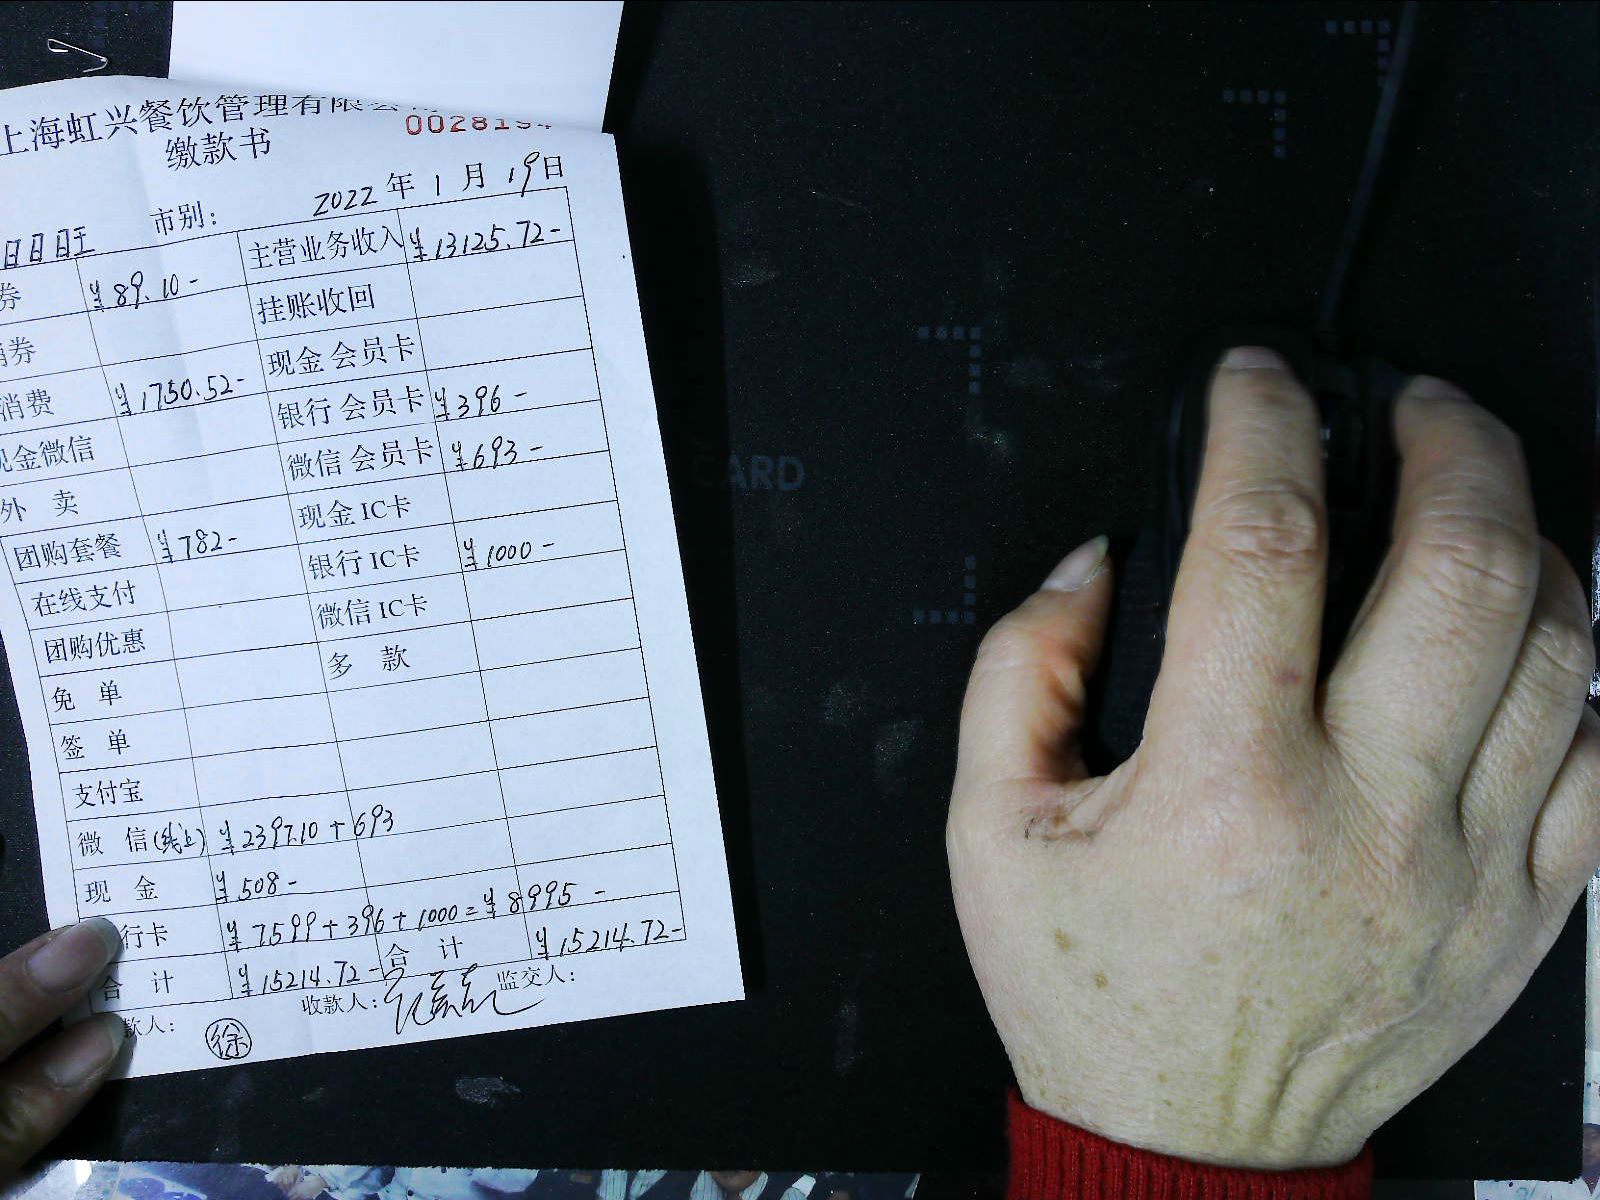 上海虹兴餐饮管理有限
缴款书
市别： 2022 年 1 月 19 日
日日日旺
券 ¥89.10- 主营业务收入 ¥13125.72-
券 挂账收回
消费 ¥1750.52- 现金 会员卡
金微信 银行 会员卡 ¥396-
外 卖 微信 会员卡 ¥693-
团购套餐 ¥782- 现金 IC卡
在线支付 银行 IC卡 ¥1000-
团购优惠 微信 IC卡
免 单 多 款
签 单
支付宝
微 信(线上) ¥2397.10+693
现 金 ¥508-
行卡 ¥7599+396+1000=¥8995-
合 计 ¥15214.72- 合 计 ¥15214.72-
款人： 徐 收款人： 监交人：
CARD